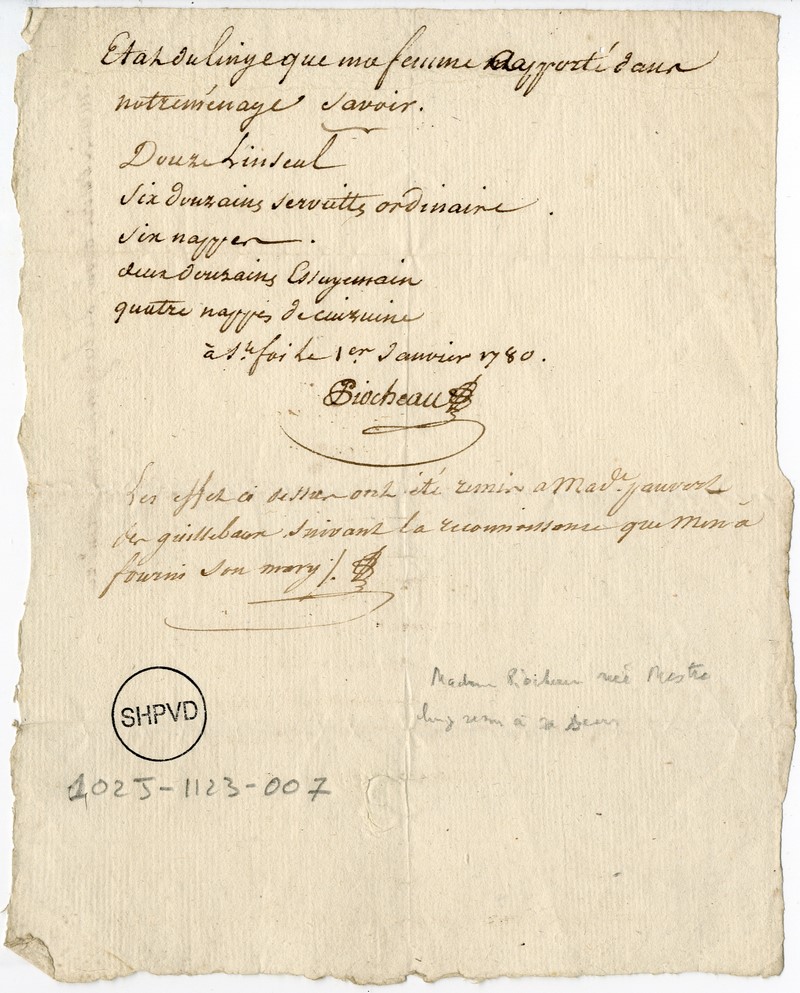 Etat du linge que ma femme a apporté dans
notre ménage savoir.
Douze Linseul
six douzaines serviettes ordinaire .
six nappes .
deux douzaines Essuyemain
quatre nappes de cuizuine
à Ste foi Le 1er Janvier 1780.
Piocheau
Les effet ci dessus ont été remis a Made jauvert
suivant la reconnoissance que m'en à
fourni son mary /.
SHPVD
102J-1123-007
Madame née Mestre
remis à sa soeur